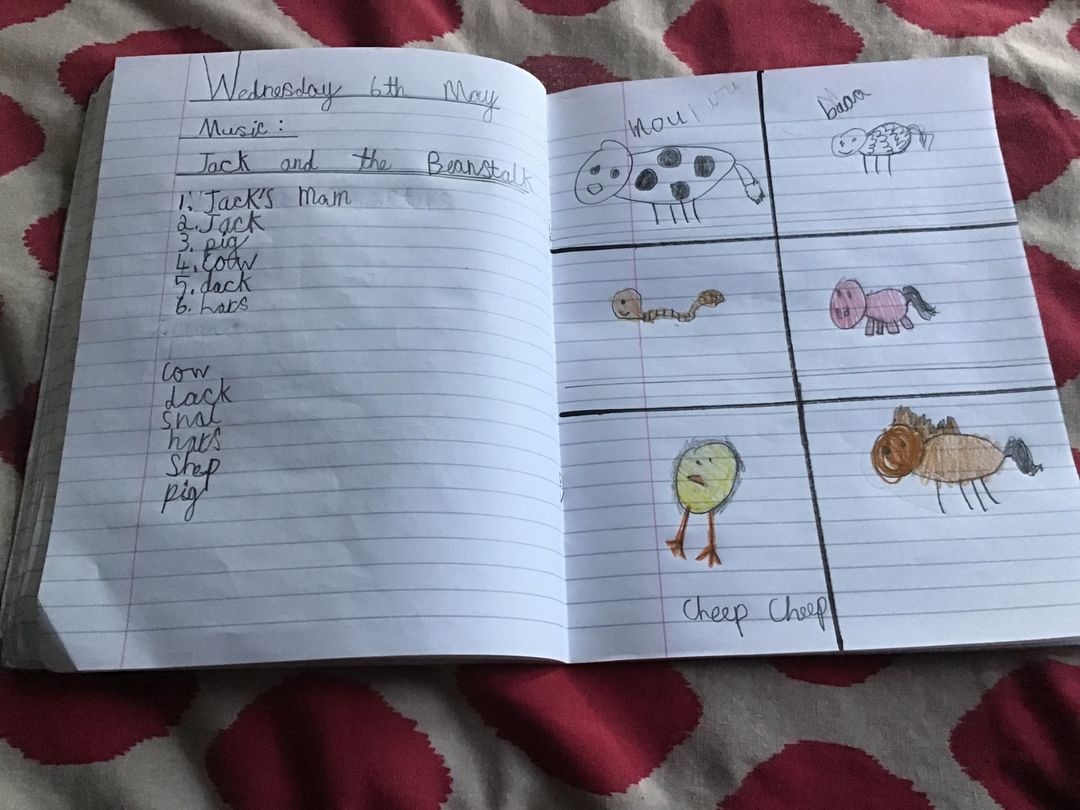 Wednesday 6th May
Music :
Jack and the Beanstalk
1. Jack's Mam
2. Jack
3. pig
4. cow
5. dack
6. hars
cow
dack
snal
hars
shep
pig
mou
baaa
Cheep Cheep